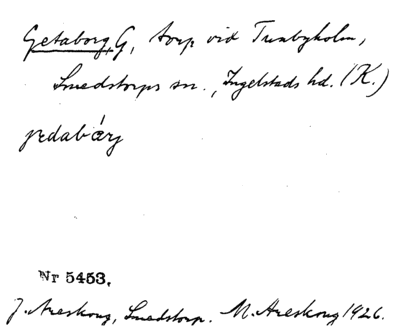 Getaborg, G, torp vid Tunbyholm,
Smedstorps sn., Ingelstads hd. (K.)
jedabǽrj
Nr 5453.
J. Areskoug, Smedstorp. M. Areskoug 1926.